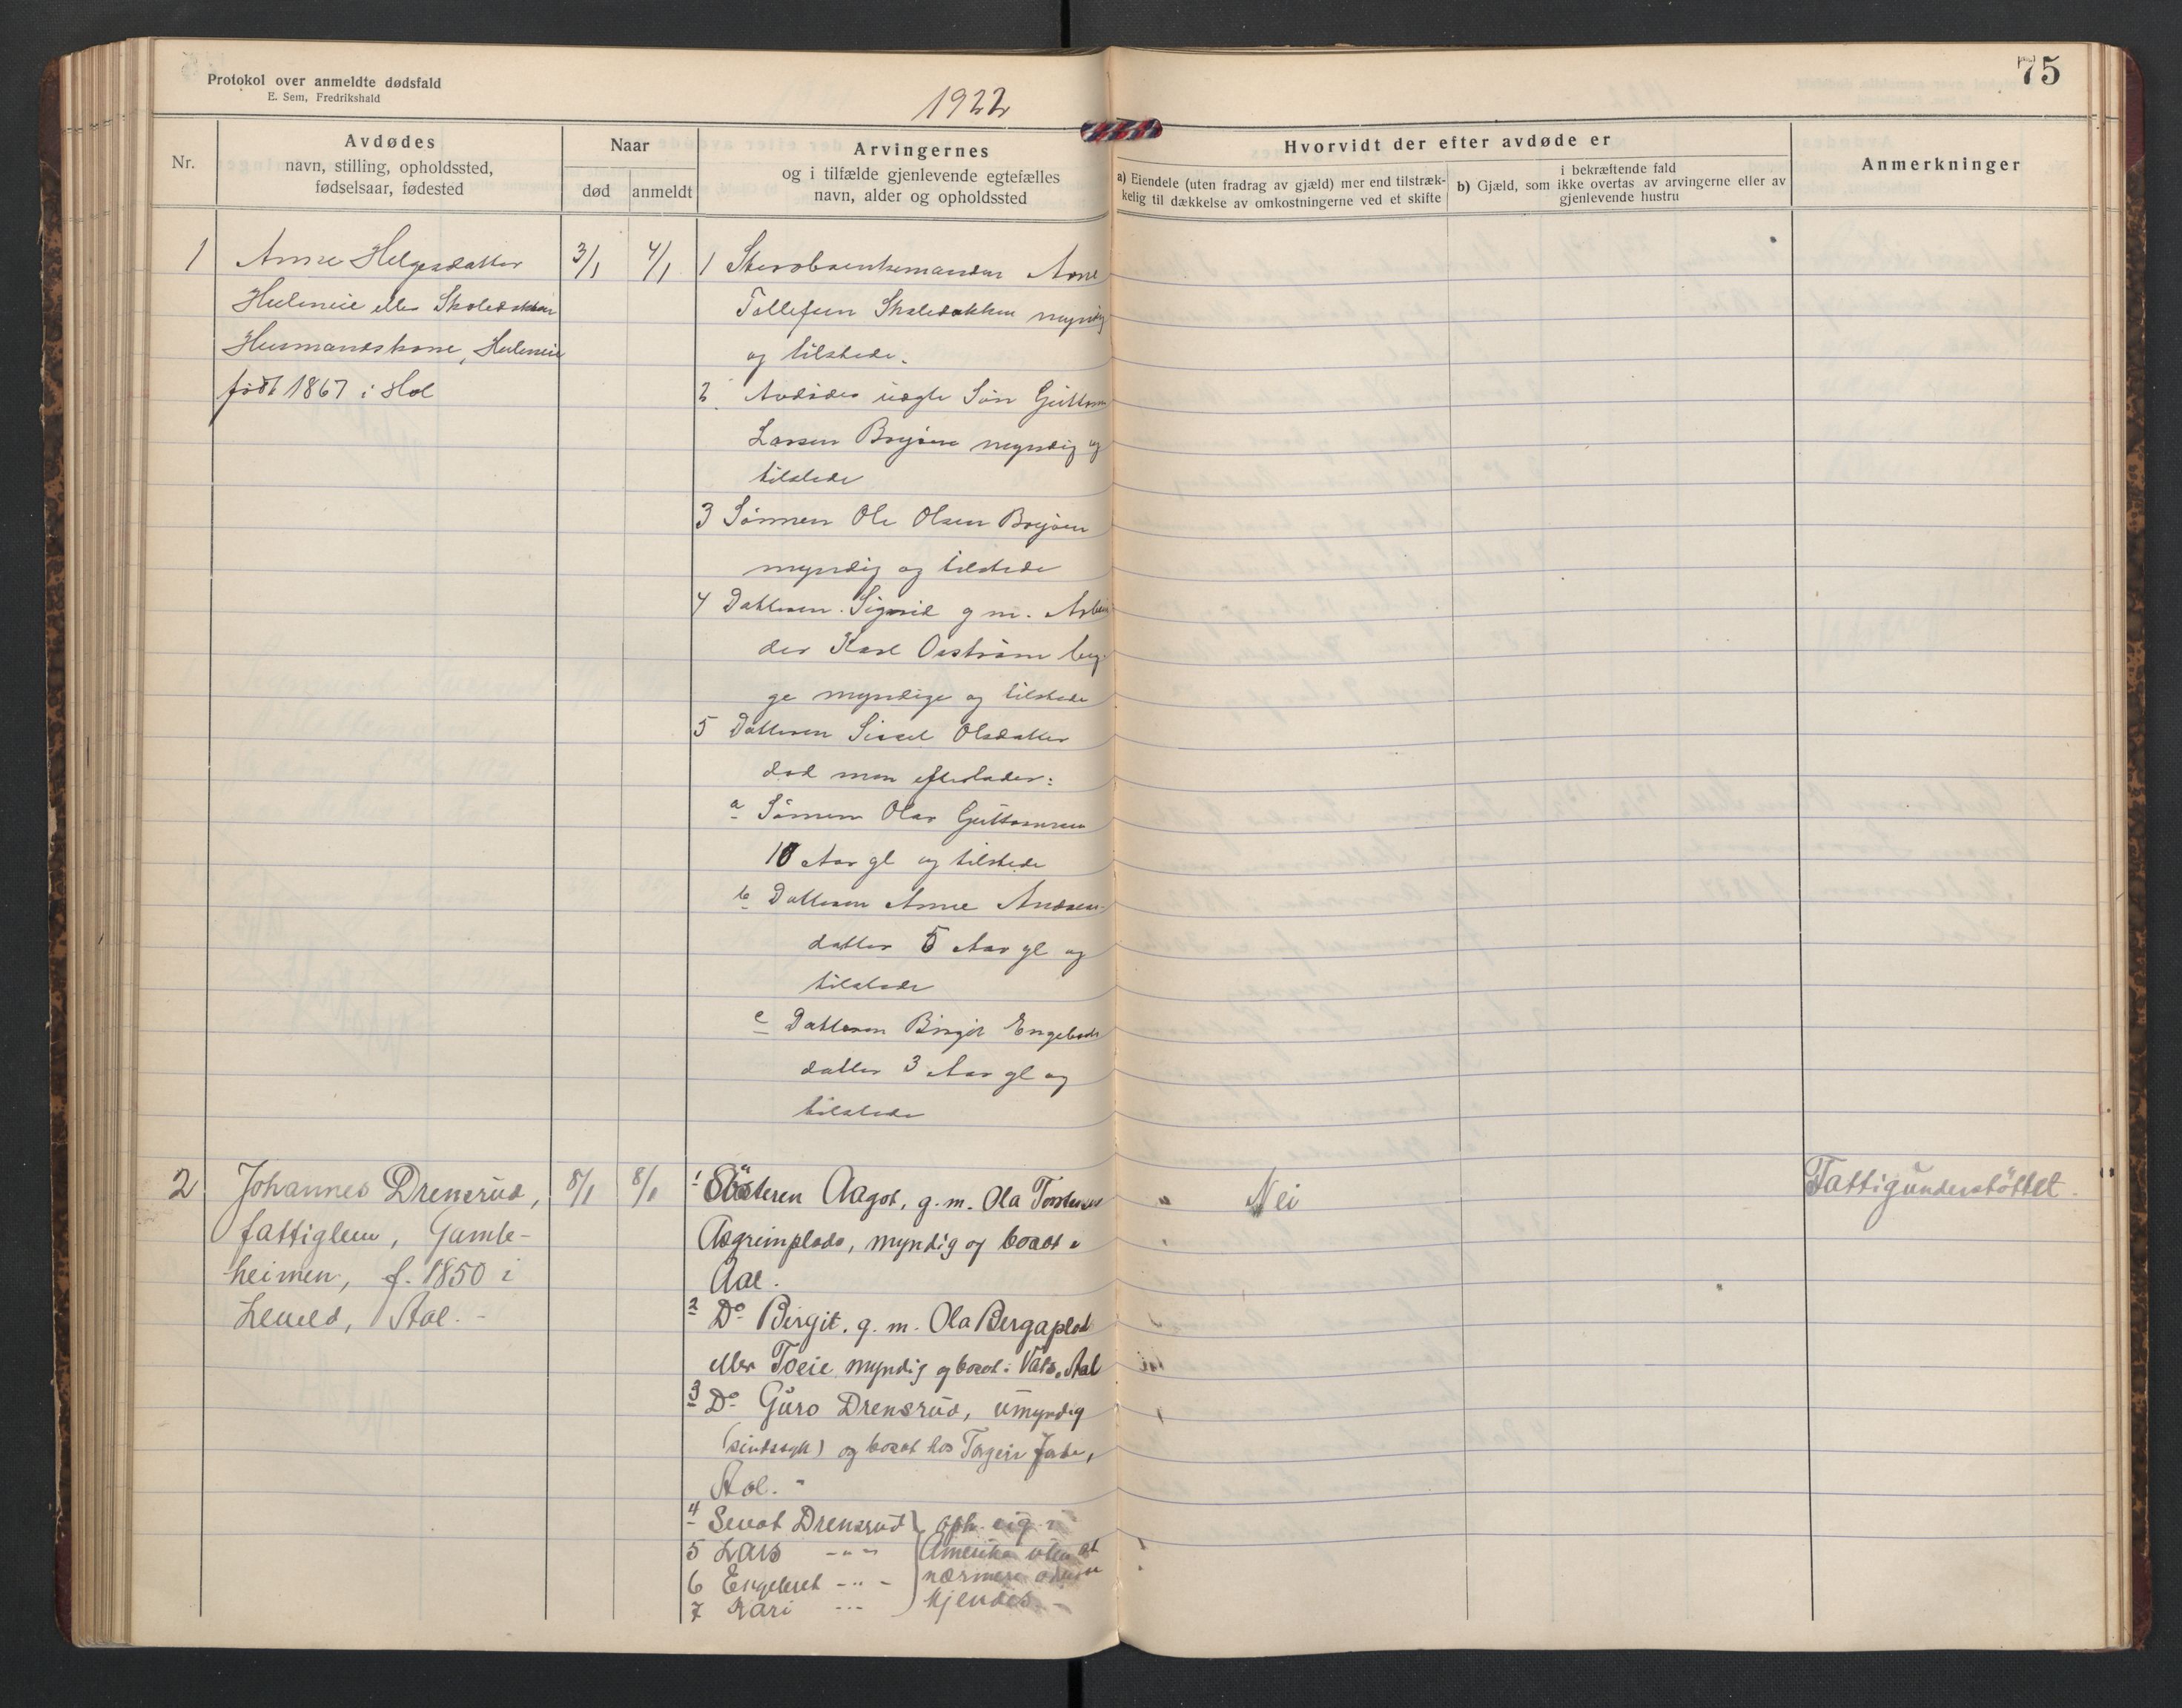 Protokol over anmeldte dødsfald
E. Sem, Fredrikshald
1922
75
Nr.
Avdødes
navn, stilling, opholdssted,
fødselsaar, fødested
Naar
død
anmeldt
Arvingernes
og i tilfælde gjenlevende egtefælles
navn, alder og opholdssted
Hvorvidt der efter avdøde er
a) Eiendele (uten fradrag av gjæld) mer end tilstræk-
kelig til dækkelse av omkostningerne ved et skifte
i bekræftende fald
b) Gjæld, som ikke overtas av arvingerne eller av
gjenlevende hustru
Anmerkninger
1
Anne Helgesdatter
Huleneie eller Skoledokken
Husmandskone, Huleneie
født 1867 i Hol
3/1
4/1
1 Arne
Tollefsen Skoledokken myndig
og tilstede.
2 Avdødes uegte Søn Guttorm
Larsen Brejøen myndig og
tilstede
3 Sønnen Ole Olsen Brejøen
myndig og tilstede
4 Datteren Sigrid g m. Arbei
der Karl Osstrøm beg-
ge myndige og tilstede
5 Datteren Sissel Olsdatter
død men efterlader:
a Sønnen Olav Guttormsen
10 Aar gl og tilstede
b Datteren Anne Andersen-
datter 5 Aar gl og
tilstede
c Datteren Birgit Engebrets
datter 3 Aar gl og
tilstede
2
Johannes Drensrud,
fattiglem, Gamle-
heimen, f. 1850 i
Leveld, Aal. -
8/1
8/1
1 Søsteren Aagot, g. m. Ola Torstensen
Asgrimplads, myndig og bosat i
Aal.
2 Do Birgit, g. m. Ola Bergaplads
eller Toeie myndig og bosat i Vats, Aal
3 Do Guro Drensrud, umyndig
(sindssyk) og bosat hos Torgeir Jate,
Aal. -
4 Sevat Drensrud } oph. sig i
5 Lars -"- Amerika uten at
6 Engebret -"- nærmere adresse
7 Kari -"- kjendes. -
Nei
Fattigunderstøttet.